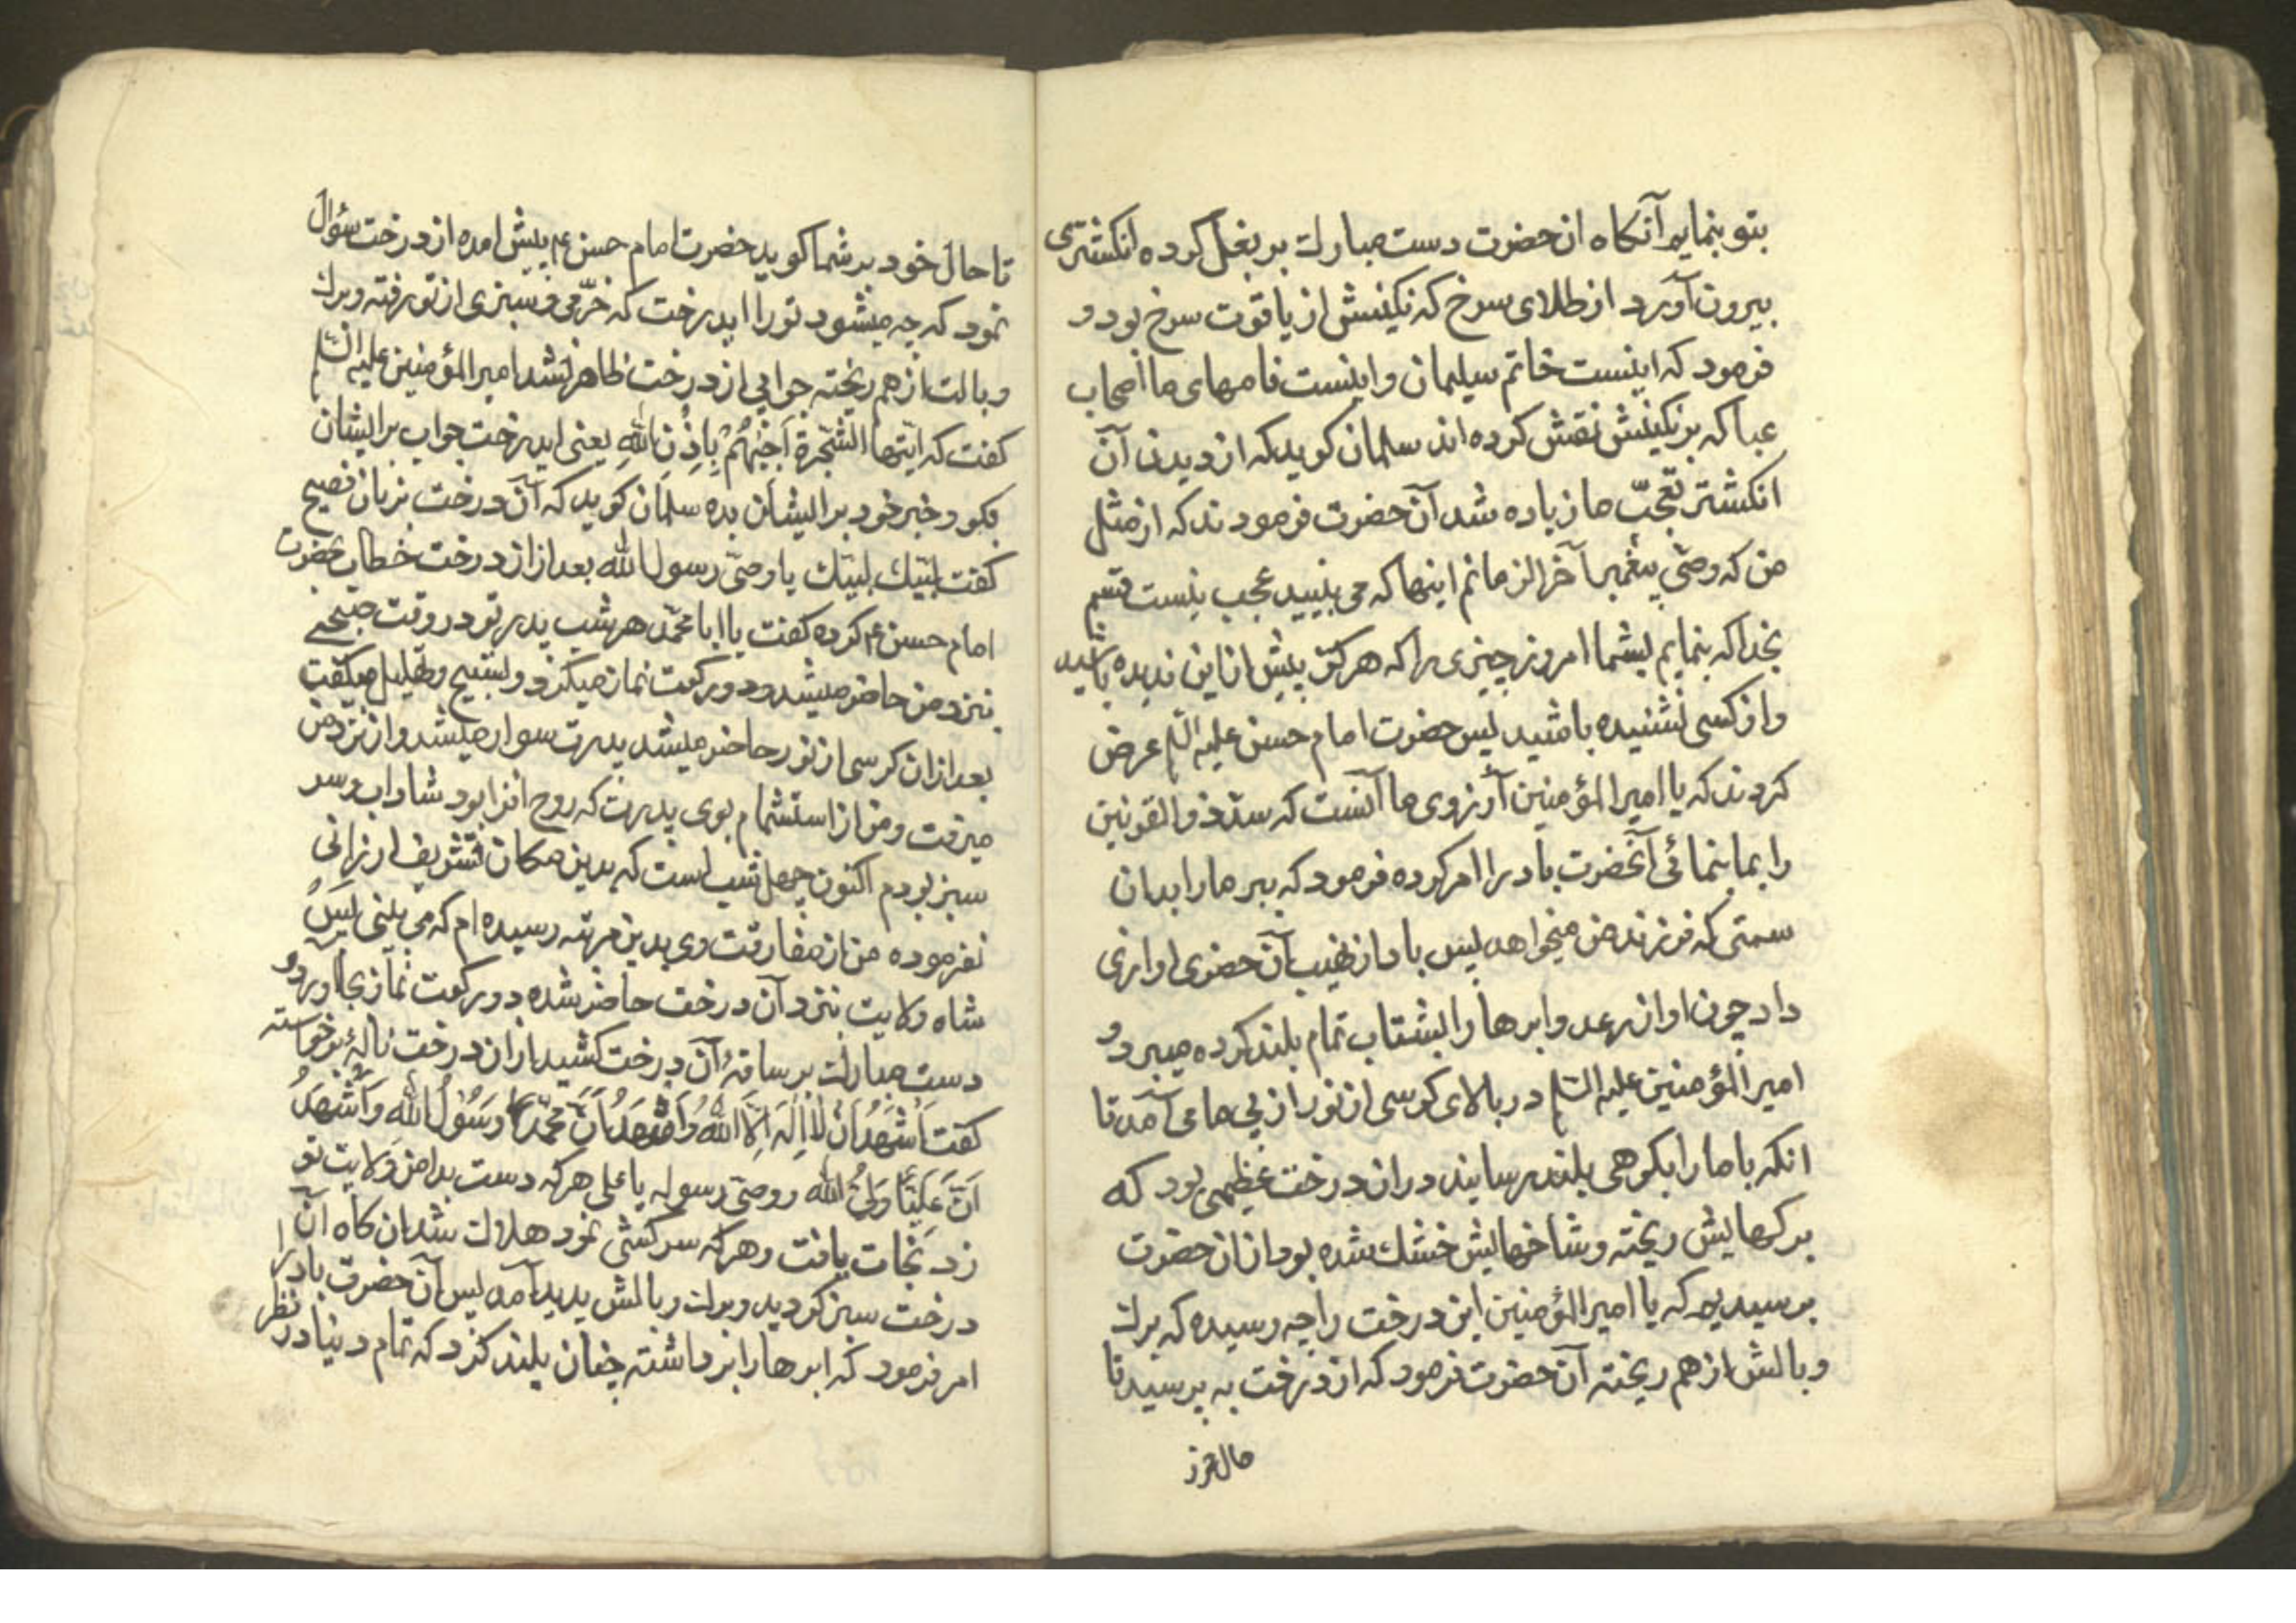 بتو بنمایم آنکاه ان حضرت دست مبارک بر بغل کرده انکشتری
بیرون آورد از طلای سرخ که نکینش از یاقوت سرخ بود و
فرمود که اینست خاتم سلیمان و اینست نامهای ما اصحاب
عبا که بر نکینش نقش کرده اند سلمان کوید که از دیدن آن
انکشتر تعجّب ما زیاده شد آن حضرت فرمودند که از مثل
من که وصّی پیغمبر آخر الزمانم اینها که می بینید عجب نیست قسم
بخدا که بنمایم بشما امروز چیزی را که هرکز پیش از این ندیده باشید
و از کسی نشنیده باشید پس حضرت امام حسن علیه السلم عرض
کردند که یا امیر المؤمنین آرزوی ما آنست که سد ذو القرنین
را بما بنمائی آنحضرت باد را امر کرده فرمود که ببر ما را بدان
سمتی که فرزند من میخواهد پس باد از نهیب آن حضرت اوازی
داد چون اواز رعد و ابرها را بشتاب تمام بلند کرده میبرد و
امیر المؤمنین علیه السلم در بالای کرسی از نور از پی ما می آمد تا
انکه باد ما را بکوهی بلند رسانید در ان درخت عظیمی بود که
برکهایش ریخته و شاخهایش خشک شده بود از ان حضرت
پرسیدیم که یا امیر المؤمنین این درخت را چه رسیده که برک
و بالش از هم ریخته آن حضرت فرمود که از درخت به پرسید تا
تا حال خود بر شما کوید حضرت امام حسن ع پیش امده از درخت سؤال
نمود که چه میشود تو را ایدرخت که خرّمی و سبزی از تو رفته و برک
و بالت از هم ریخته جوابی از درخت ظاهر نشد امیر المؤمنین علیه السلم
کفت که ایّتها الشّجرة اَجِبْهُمْ بِاِذْنِ اللهِ یعنی ایدرخت جواب بر ایشان
بکو و خبر خود بر ایشان بده سلمان کوید که آن درخت بزبان فصیح
کفت لبّیک لبّیک یا وصّی رسول الله بعد از ان درخت خطاب بحضرت
امام حسن ع کرده کفت یا ابا محمّد هر شب پدر تو در وقت صبحی
نزد من حاضر میشد و دو رکعت نماز میکزد و تسبیح و تهلیل میکفت
بعد از ان کرسی از نور حاضر میشد پدرت سوار میشد و از نزد من
میرفت و من از استشمام بوی پدرت که روح افزا بود شاداب و سر
سبز بودم اکنون چهل شب است که بدین مکان تشریف ارزانی
نفرموده من از مفارقت وی بدین مرتبه رسیده ام که می بینی پس
شاه ولایت بنزد آن درخت حاضر شده دو رکعت نماز بجا اورد و
دست مبارک بر ساقهٔ آن درخت کشید از ان درخت نالهٔ برخواسته
کفت اَشْهَدُ اَنْ لا اِلٰهَ اِلاَّ اللهُ وَاَشْهَدُ اَنَّ مُحَمَّدًا رَسُوْلُ اللهِ وَاَشْهَدُ
اَنَّ عَلِیًّا وَلِیُّ اللهِ و وصّی رسوله یا علی هرکه دست بدامن وَلایت تو
زد نجات یافت و هرکه سرکشی نمود هلاک شد ان کاه آن
درخت سبز کردید و برک و بالش پدید آمد پس آن حضرت باد را
امر فرمود که ابرها را برداشته چنان بلند کرد که تمام دنیا در نظر